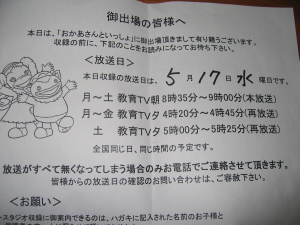 御出場の皆様へ
本日は、「おかあさんといっしょ」に御出場頂きまして有り難うございます。
収録の前に、下記のことをお読みになってお待ち下さい。
<放送日>
本日収録の放送は、5月17日水曜日です。
月～土 教育TV朝8時35分～9時00分(本放送)
月～金 教育TV夕4時20分～4時45分(再放送)
土 教育TV夕5時00分～5時25分(再放送)
全国同じ日、同じ時間の予定です。
放送がすべて無くなってしまう場合のみお電話でご連絡させて頂きます。
皆様からの放送日の確認のお問い合わせは、ご容赦下さい。
<お願い>
スタジオ収録に御案内できるのは、ハガキに記入された名前のお子様と